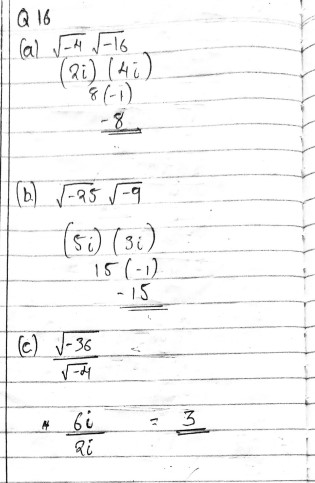 Q 16
(a) √-4 √-16
(2i) (4i)
8(-1)
-8
(b) √-25 √-9
(5i) (3i)
15(-1)
-15
(c) √-36
√-4
6i = 3
2i